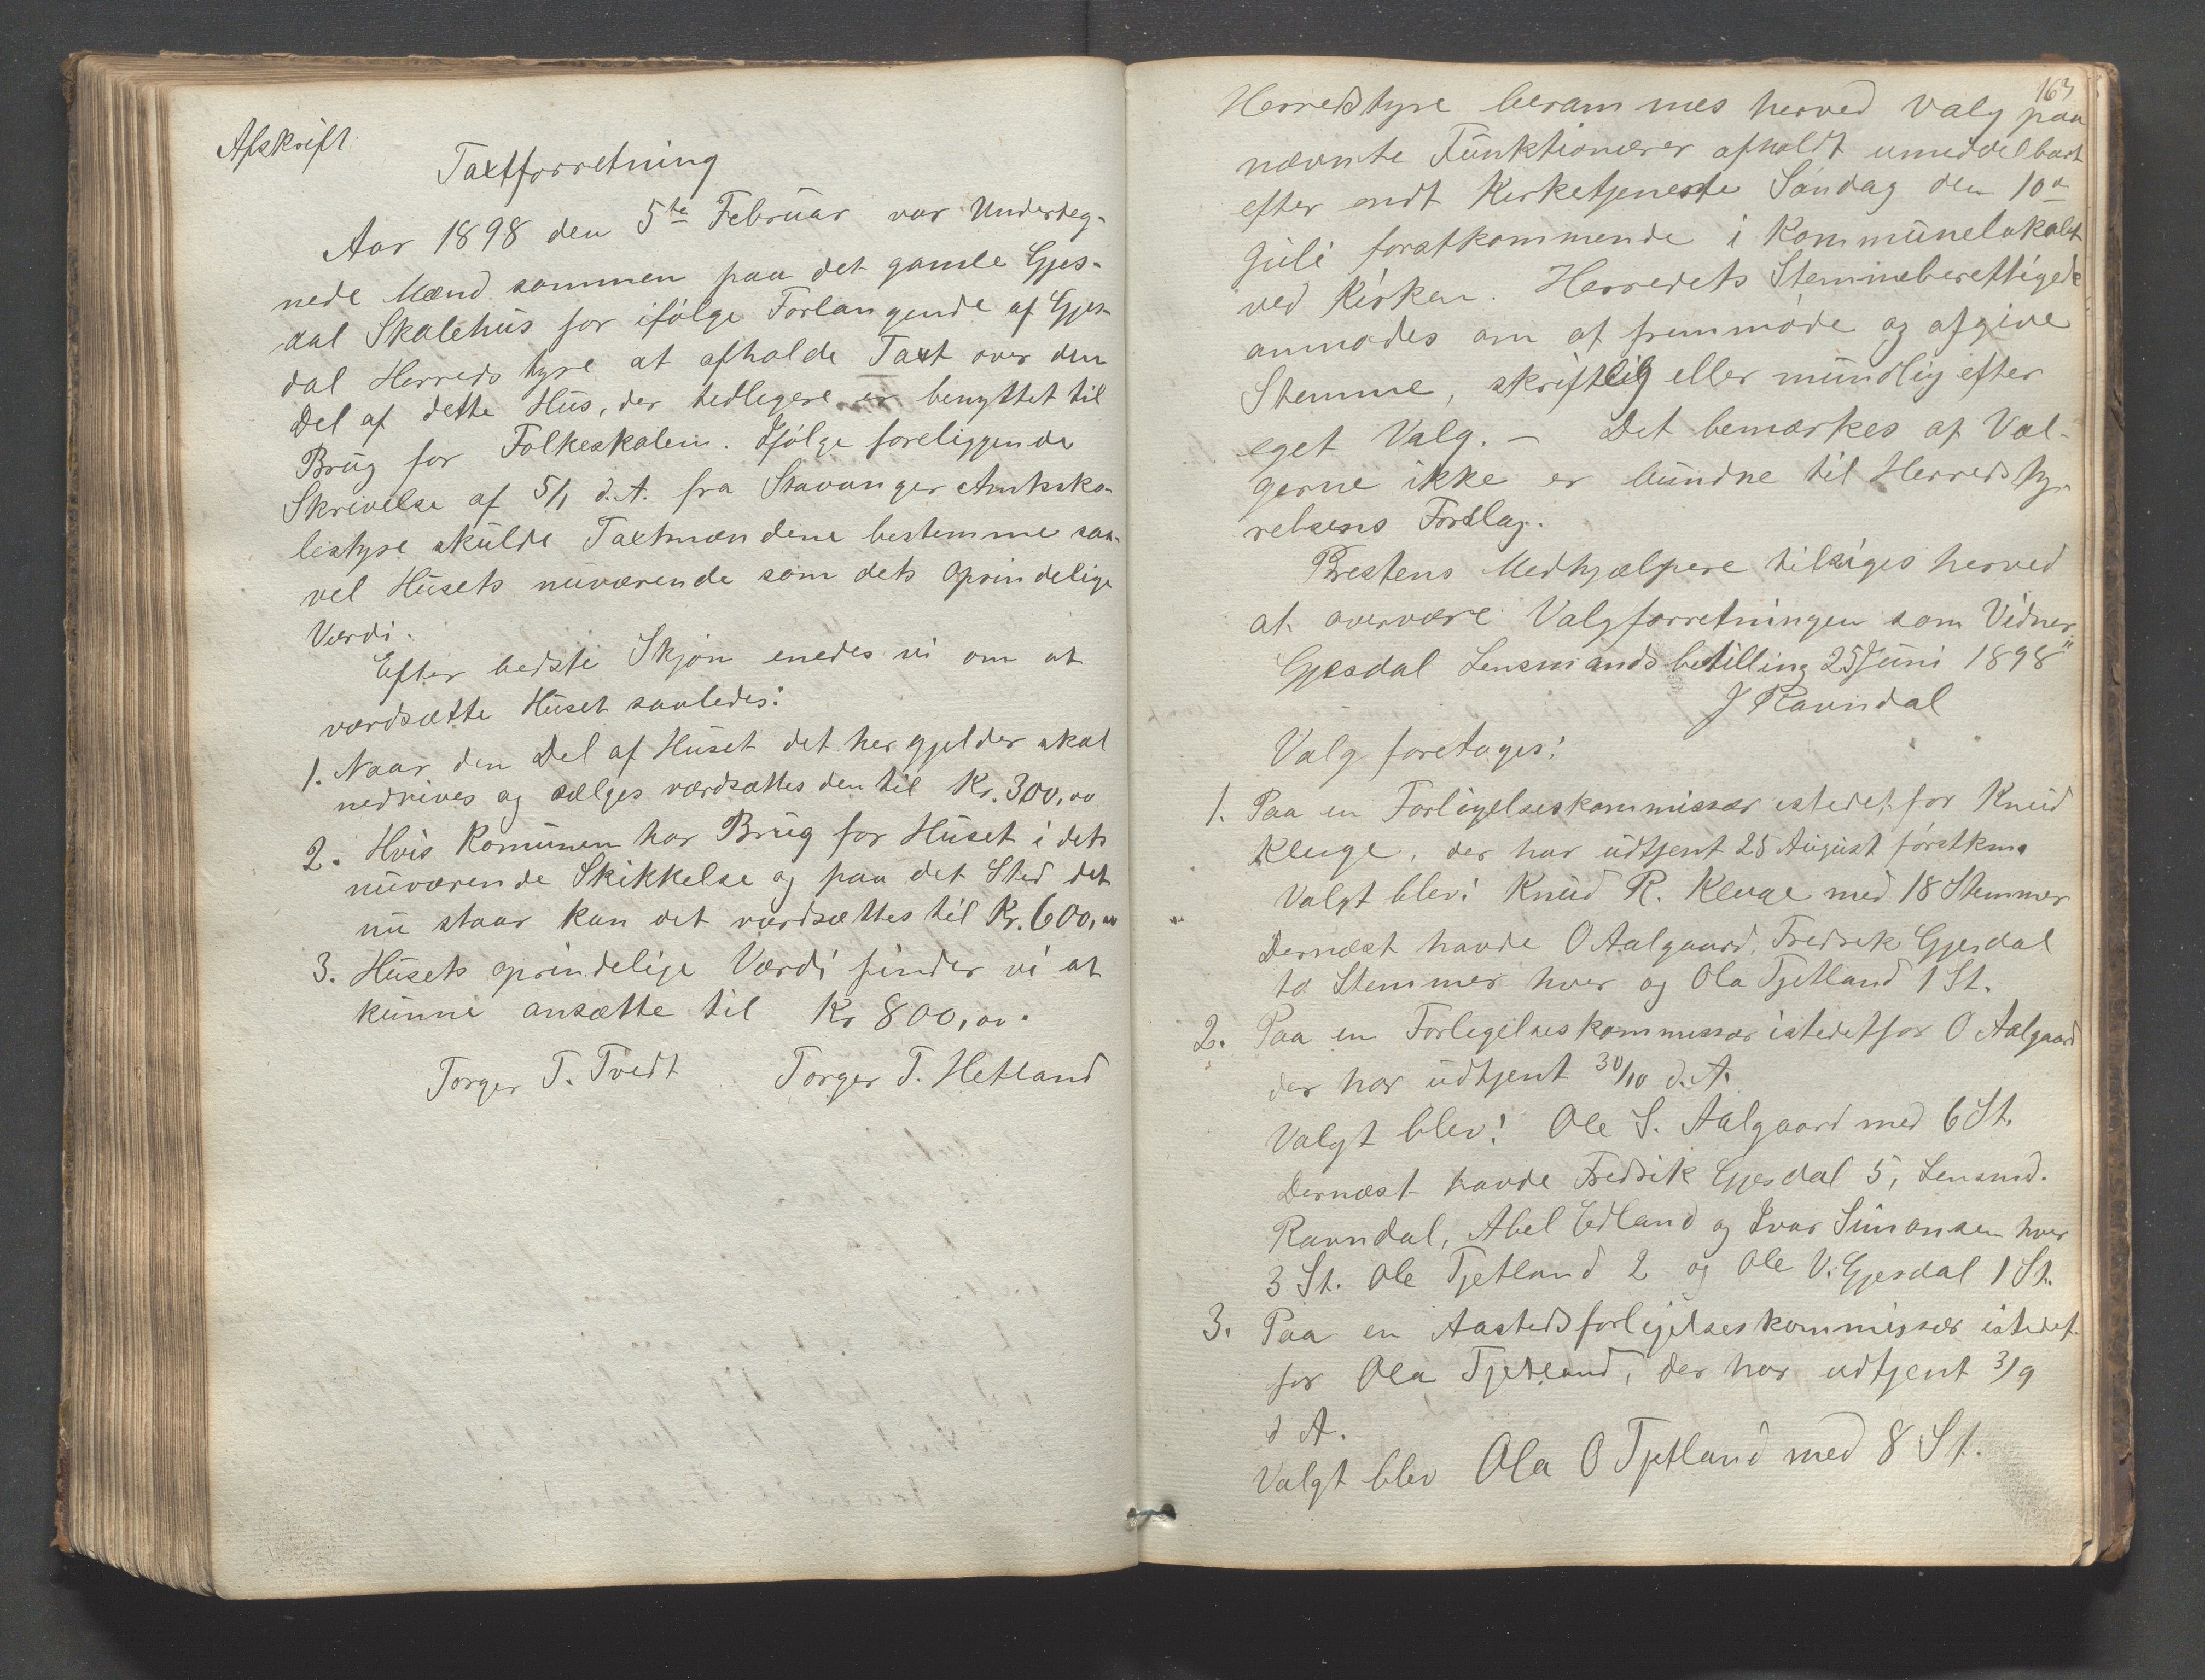 Afskrift
Taxtforretning
Aar 1898 den 5te Februar var Underteg-
nede Mænd sammen paa det gamle Gjes-
dal Skolehus for ifølge Forlangende af Gjes-
dal Herredstyre at afholde Taxt over den
Del af dette Hus, der tidligere er benyttet til
Brug for Folkeskolen. Ifølge foreliggende
Skrivelse af 5/1 d.A. fra Stavanger Amtssko-
lestyre skulde Taxtmændene bestemme saa-
vel Husets nuværende som dets oprindelige
Værdi.
Efter bedste Skjøn enedes vi om at
værdsætte Huset saaledes:
1. Naar den Del af Huset det her gjelder skal
nedrives og sælges værdsættes den til Kr. 300,00
2. Hvis Komunen har Brug for Huset i dets
nuværende Skikkelse og paa det Sted det
nu staar kan det værdsættes til Kr. 600,00
3. Husets oprindelige Værdi finder vi at
kunne ansætte til Kr 800,00.
Torger T. Tvedt Torger T. Hetland
163
Herredstyre berammes herved Valg paa
nævnte Funktionærer afholdt umiddelbart
efter endt Kirketjeneste Søndag den 10de
Juli førstkommende i Kommunelokalet
ved Kirken. Herredets Stemmeberettigede
anmodes om at fremmøde og afgive
Stemme, skriftlig eller mundlig efter
eget Valg. — Det bemærkes at Væl-
gerne ikke er bundne til Herredsty-
relsens Forslag.
Prestens Medhjælpere tilsiges herved
at overvære Valgforretningen som Vidner.
Gjesdal Lensmandsbestilling 25 Juni 1898"
J Ravndal
Valg foretoges:
1. Paa en Forligelseskommissær istedetfor Knud
Kluge, der har udtjent 25 August førstkm.
Valgt blev: Knud R. Kluge med 18 Stemmer
Dernæst havde O Aalgaard, Fredrek Gjesdal
to Stemmer hver og Ola Tjetland 1 St.
2. Paa en Forlegelseskommissær istedetfor O Aalgaard
der har udtjent 30/10 d.A.
Valgt blev: Ole S. Aalgaard med 6 St.
Dernæst havde Fredrik Gjesdal 5, Lensmd.
Ravndal, Abel Edland og Ivar Simonsen hver
3 St. Ole Tjetland 2 og Ole V. Gjesdal 1 St.
3. Paa en Aastedsforligelseskommissær istedet-
for Ola Tjetland, der har udtjent 3/9
d A.
Valgt blev Ola O Tjetland med 8 St.